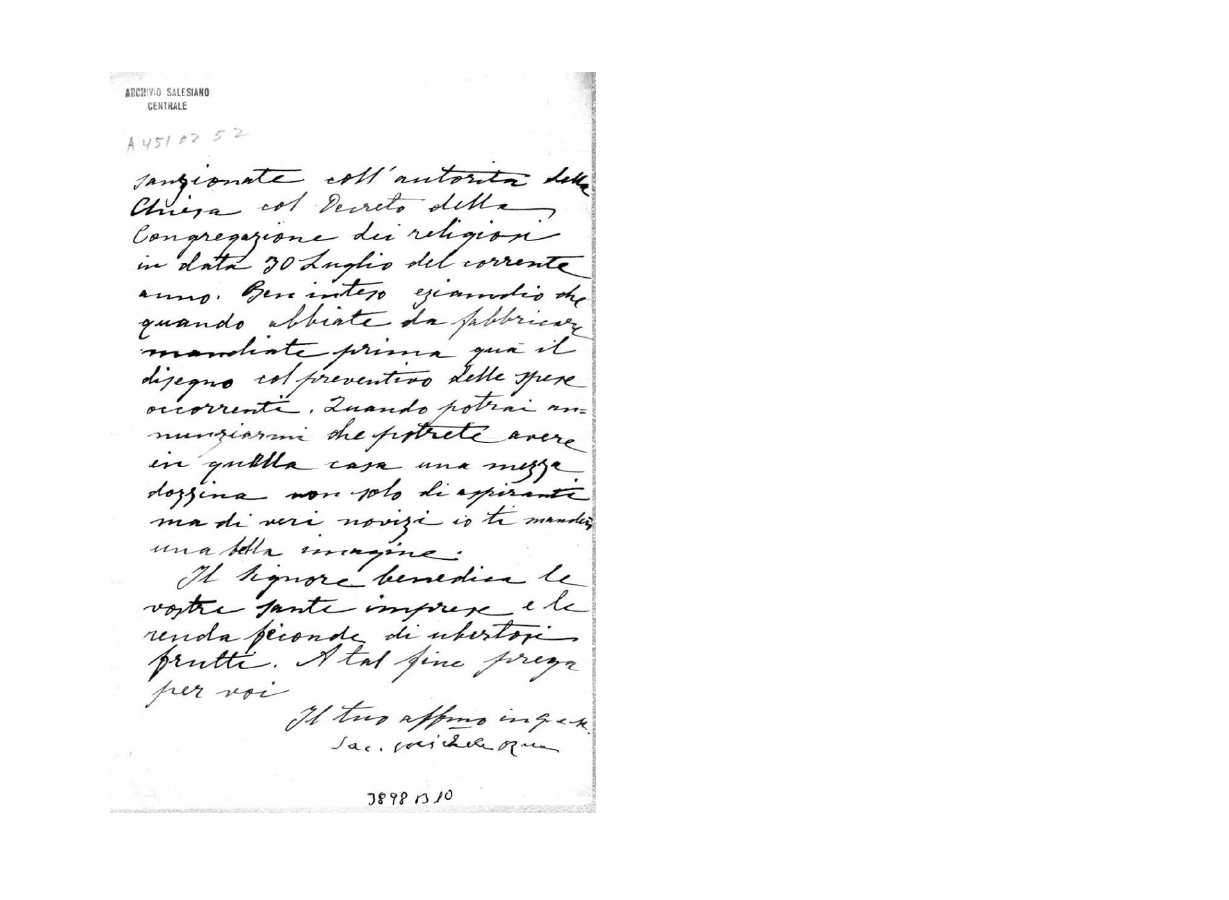 ARCHIVIO SALESIANO
CENTRALE
A 451 02 52
sanzionate coll'autorità della
Chiesa col Decreto della
Congregazione dei religiosi
in data 30 Luglio del corrente
anno. Ben inteso eziamdio che
quando abbiate da fabbricare
mandiate prima quà il
disegno col preventivo delle spese
occorrenti. Quando potrai an=
nunziarmi che potrete avere
in quella casa una mezza
dozzina non solo di aspiranti
ma di veri novizi io ti manderò
una bella imagine.
Il Signore benedica le
vostre sante imprese e le
renda feconde di ubertosi
frutti. A tal fine prega
per voi
Il tuo affmo in G. e M.
Sac. Michele Rua
3898 B 10